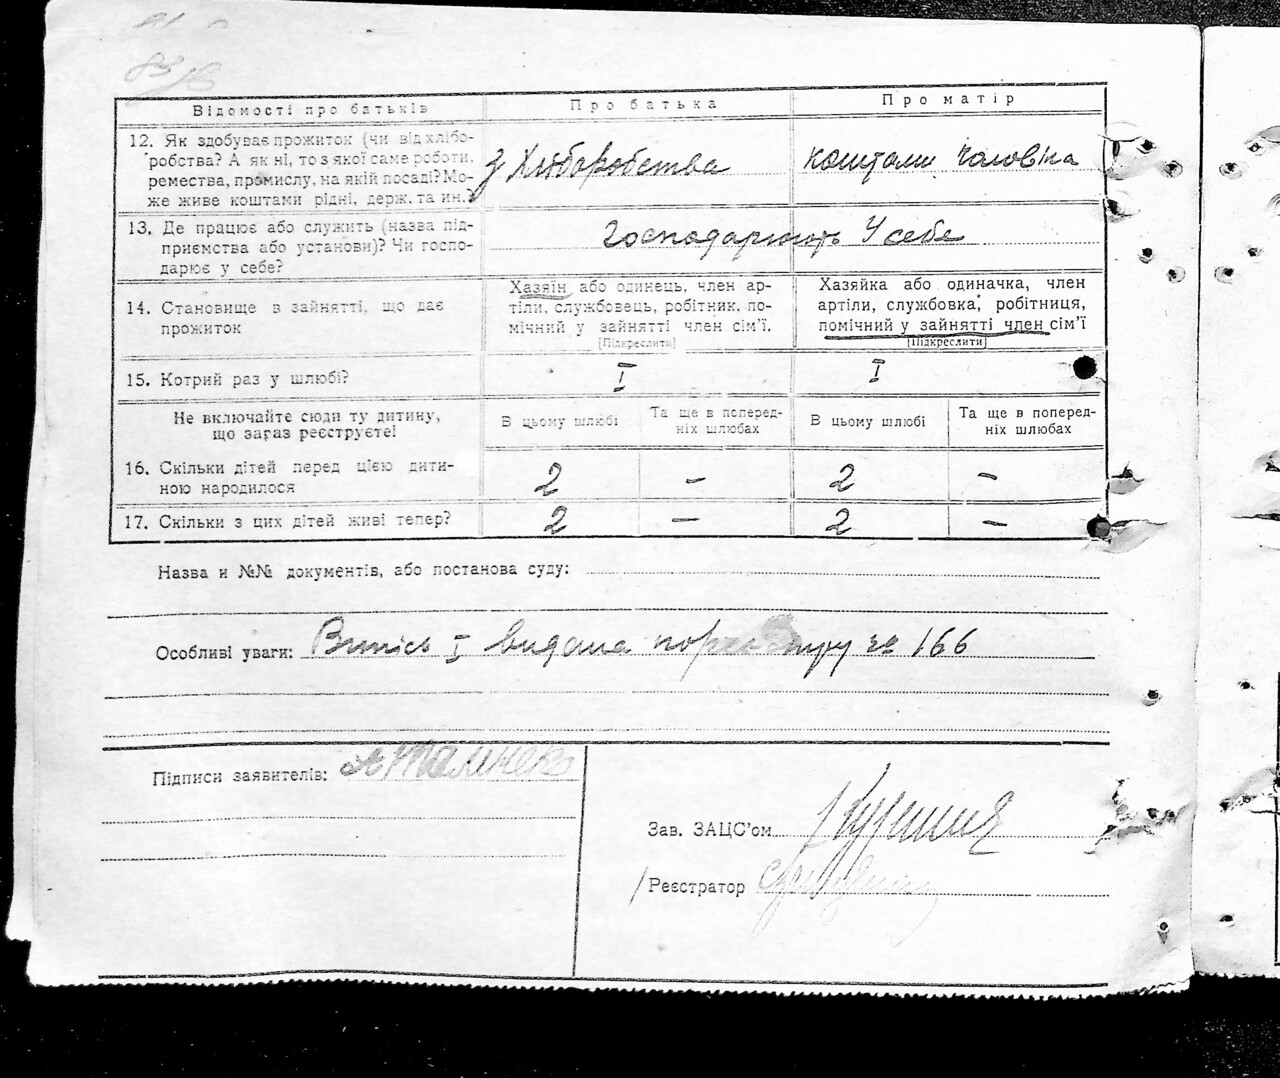 Відомості про батьків Про батька Про матір
12. Як здобуває прожиток (чи від хлібо-
робства? А як ні, то з якої саме роботи,
ремества, промислу, на якій посаді? Мо-
же живе коштами рідні, держ. та ин.?
з Хліборобства
коштами чоловіка
13. Де працює або служить (назва під-
приємства або установи)? Чи госпо-
дарює у себе?
Господарюють У себе
14. Становище в зайнятті, що дає
прожиток
Хазяїн або одинець, член ар-
тіли, службовець, робітник, по-
мічний у зайнятті член сім'ї.
[Підкреслити]
Хазяйка або одиначка, член
артіли, службовка, робітниця,
помічний у зайнятті член сім'ї
[Підкреслити]
15. Котрий раз у шлюбі? I I
Не включайте сюди ту дитину,
що зараз реєструєте!
В цьому шлюбі
Та ще в поперед-
ніх шлюбах
В цьому шлюбі
Та ще в поперед-
ніх шлюбах
16. Скільки дітей перед цією дити-
ною народилося
2 – 2 –
17. Скільки з цих дітей живі тепер? 2 – 2 –
Назва и №№ документів, або постанова суду:
Особливі уваги: Випись I видана по реєстру № 166
Підписи заявителів:
Зав. ЗАЦС'ом
Реєстратор